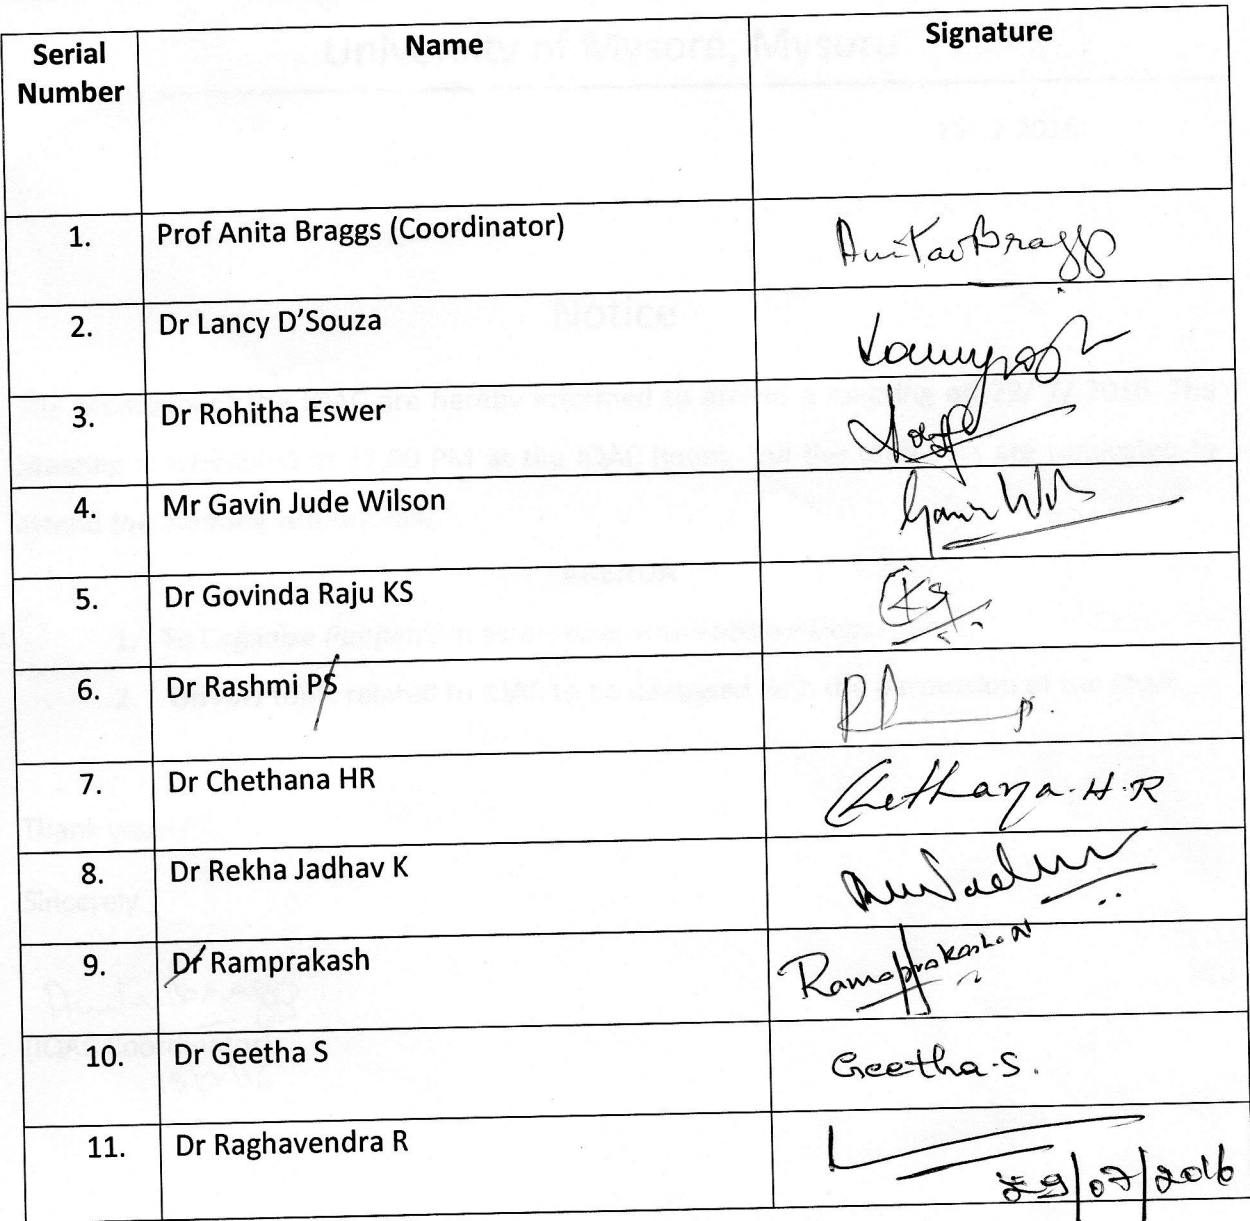 Serial Number Name Signature
1. Prof Anita Braggs (Coordinator) Anita Braggs
2. Dr Lancy D'Souza
3. Dr Rohitha Eswer
4. Mr Gavin Jude Wilson
5. Dr Govinda Raju KS
6. Dr Rashmi PS
7. Dr Chethana HR Chethana.H.R
8. Dr Rekha Jadhav K
9. Dr Ramprakash Ramaprakasha N
10. Dr Geetha S Geetha.S.
11. Dr Raghavendra R
29/07/2016